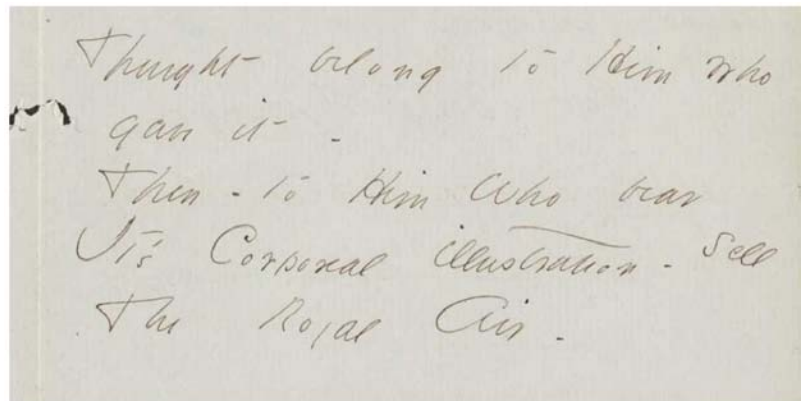 Thought belong to Him who
gave it -
Then - to Him Who bear
It's Corporeal illustration - Sell
The Royal Air -